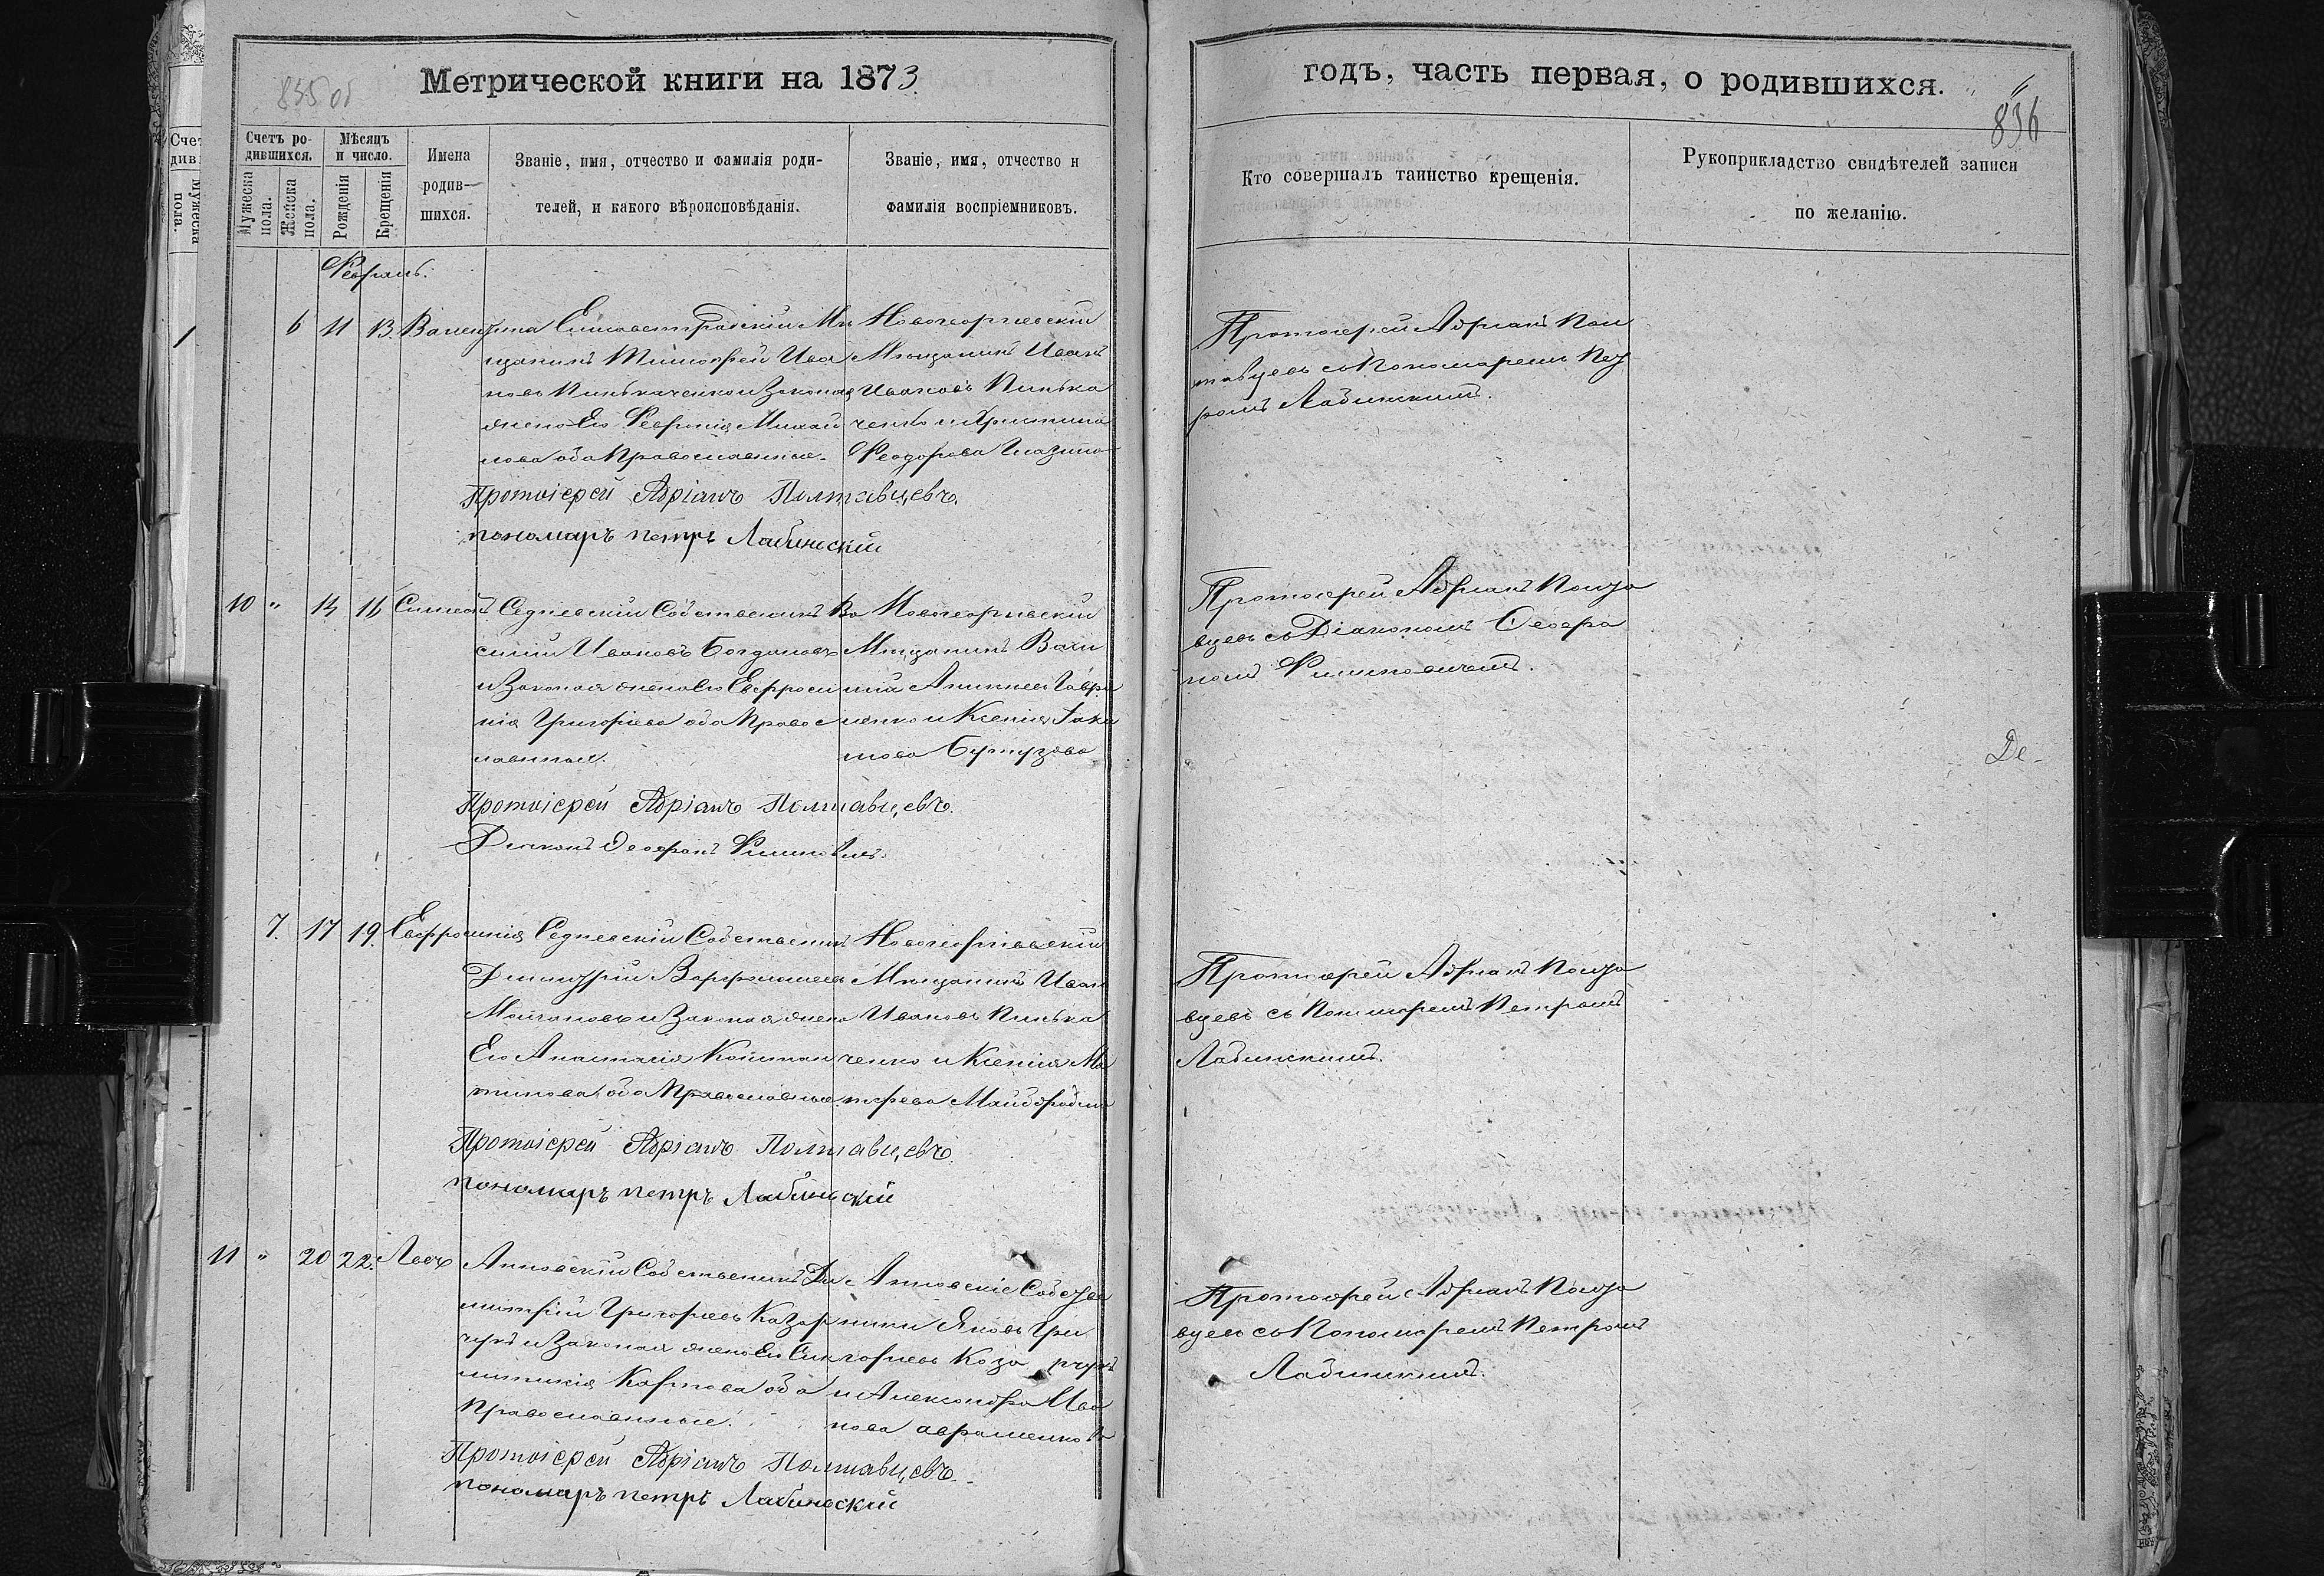 835 об
Метрической книги на 1873
Счетъ ро-
дившихся.
Мѣсяцъ
и число.
Мужеска
пола.
Женска
пола.
Рожденія
Крещенія
Имена
родив-
шихся.
Званіе, имя, отчество и фамилія роди-
телей, и какого вѣроисповѣданія.
Званіе, имя, отчество и
фамилія воспріемниковъ.
Февраль.
6 11 13. Валентина
Елисаветградскій Мѣ
щанинъ Тимофей Ива
новъ Пинькаченко и Законая
жена Его Феврония Михай
лова оба Православные.
Новогеоргиевскій
Мѣщанинъ Иванъ
Ивановъ Пинька
ченко и Христина
Феодорова
Протоіерей Адріанъ Полтавцевъ.
пономаръ петръ Лабинскій
10 " 14 16 Симеонъ
Седневскій Собственикъ Ва
силій Ивановъ Богдановъ
и Законая жена Его Евфроси
нія Григоріева оба Правос
лавные.
Новогеоргиевскій
Мѣщанинъ Васи
лій Гаври
ленко и Ксенія Іаки
мова Бутузова
Протоіерей Адріанъ Полтавцевъ.
Діяконъ Феофанъ
7. 17 19. Евфросинія
Седневскій Собственикъ
Димитрій Варфоломеевъ
Молчановъ и Законая жена
Его Анастасія Констан
тинова оба Православные.
Новогеоргіевскій
Мѣщанинъ Иванъ
Ивановъ Пинька
ченко и Ксенія Ма
Протоіерей Адріанъ Полтавцевъ.
пономаръ петръ Лабиньскій
11 " 20 22. Левъ
Анновскій Собственикъ Ди
митрій Григорьевъ Казар
чукъ и Законая жена Его Сик
литикія Карпова оба
Православные.
Анновскіе Собстве
ники Яковъ Гри
горьевъ Коза рчукъ
и Александра Ива
нова авраменкова
Протоіерей Адріанъ Полтавцевъ.
пономаръ петръ Лабиньскій
годъ, часть первая, о родившихся.
836
Кто совершалъ таинство крещенія.
Рукоприкладство свидѣтелей записи
по желанію.
Протоіерей Адріанъ Пол
тавцевъ съ Пономаремъ Пет
ромъ Лабинскимъ.
Протоіерей Адріанъ Полта
вцевъ съ Діакономъ Феофа
номъ
Протоіерей Адріанъ Полта
вцевъ съ Пономаремъ Петромъ
Лабинскимъ.
Протоіерей Адріанъ Полта
вцевъ съ Пономаремъ Петромъ
Лабинскимъ.
De-